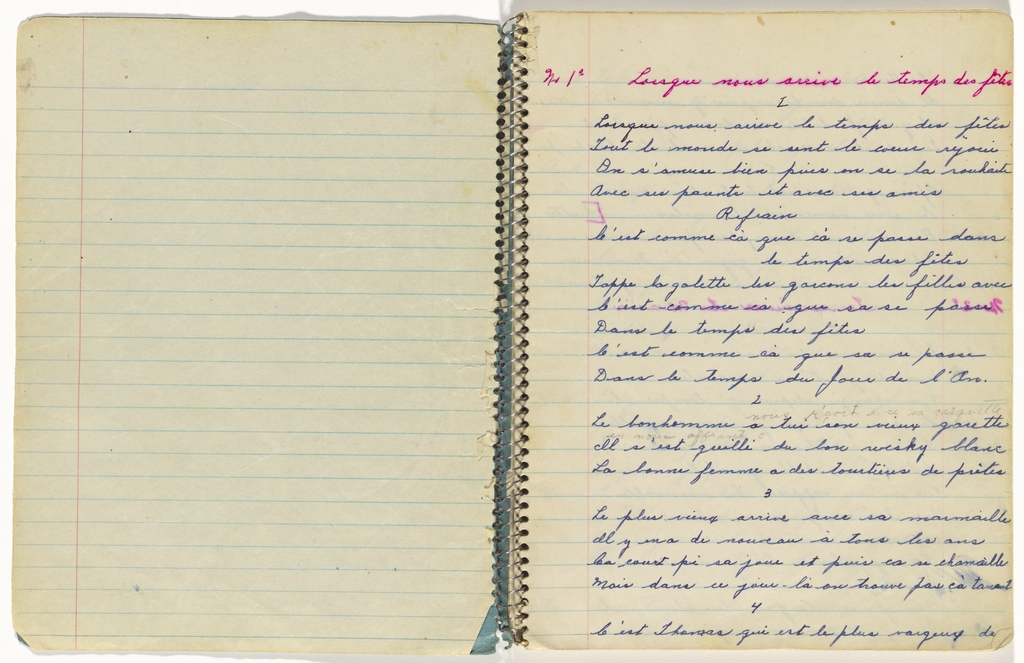 No 1ª Lorsque nous arrive le temps des fêtes
1
Lorsque nous arrive le temps des fêtes
Tout le monde se sent le coeur réjoui
On s'amuse bien puis on se la souhaite
Avec ses parents et avec ses amis
Refrain
C'est comme cà que cà se passe dans
le temps des fêtes
Tappe la galette les garcons les filles avec
C'est comme cà que sa se passe
Dans le temps des fêtes
C'est comme cà que sa se passe
Dans le temps du Jour de l'An.
2
nous r'çoit avec sa casquette
Le bonhomme a tué son vieux gorette
en nous offrant
Il s'est greillé du bon wisky blanc
La bonne femme a des tourtières de prêtes
3
Le plus vieux arrive avec sa marmaille
Il y en a de nouveau à tous les ans
Ca court pi sa joue et puis ca se chamaille
Mais dans ce jour-là on trouve pas cà tanant
4
C'est Thomas qui est le plus vargeux de